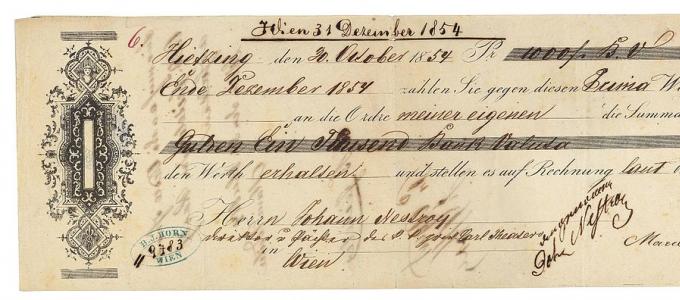 Wien 31 Dezember 1854
6.
Hietzing den 20. October 1854 Pr 1000 f. B. V.
Ende Dezember 1854 zahlen Sie gegen diesen Prima W
an die Ordre meiner eigenen die Summa
Gulden Ein Tausend Bank Valuta
den Werth erhalten und stellen es auf Rechnung laut
Herrn Johann Nestroy
Direktor u Pächter des k. k. priv Carl Theaters
in
Wien
angenommen
Joh. Nestroy
H. J. HORN
9383
WIEN